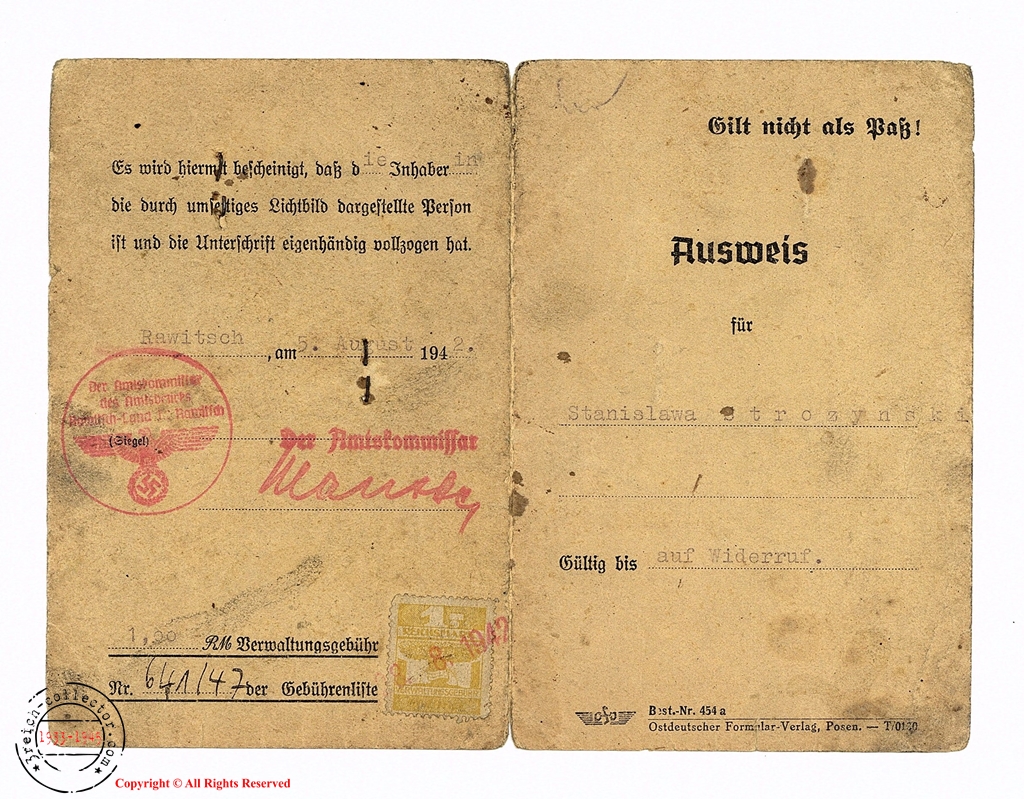 Es wird hiermit bescheinigt, daß die Inhaberin
die durch umseitiges Lichtbild dargestellte Person
ist und die Unterschrift eigenhändig vollzogen hat.
Rawitsch, am 5. August 1942.
Der Amtskommissar
des Amtsbezirks
Rawitsch-Land in Rawitsch
(Siegel)
Der Amtskommissar
1,00 RM Verwaltungsgebühr
Nr. 641/47 der Gebührenliste
1
REICHSMARK
8. 1942
Gilt nicht als Paß!
Ausweis
für
Stanislawa Strozynski
Gültig bis auf Widerruf.
Best.-Nr. 454 a
Ostdeutscher Formular-Verlag, Posen. — T/0130
3reich-collector.com
1933-1945
Copyright © All Rights Reserved